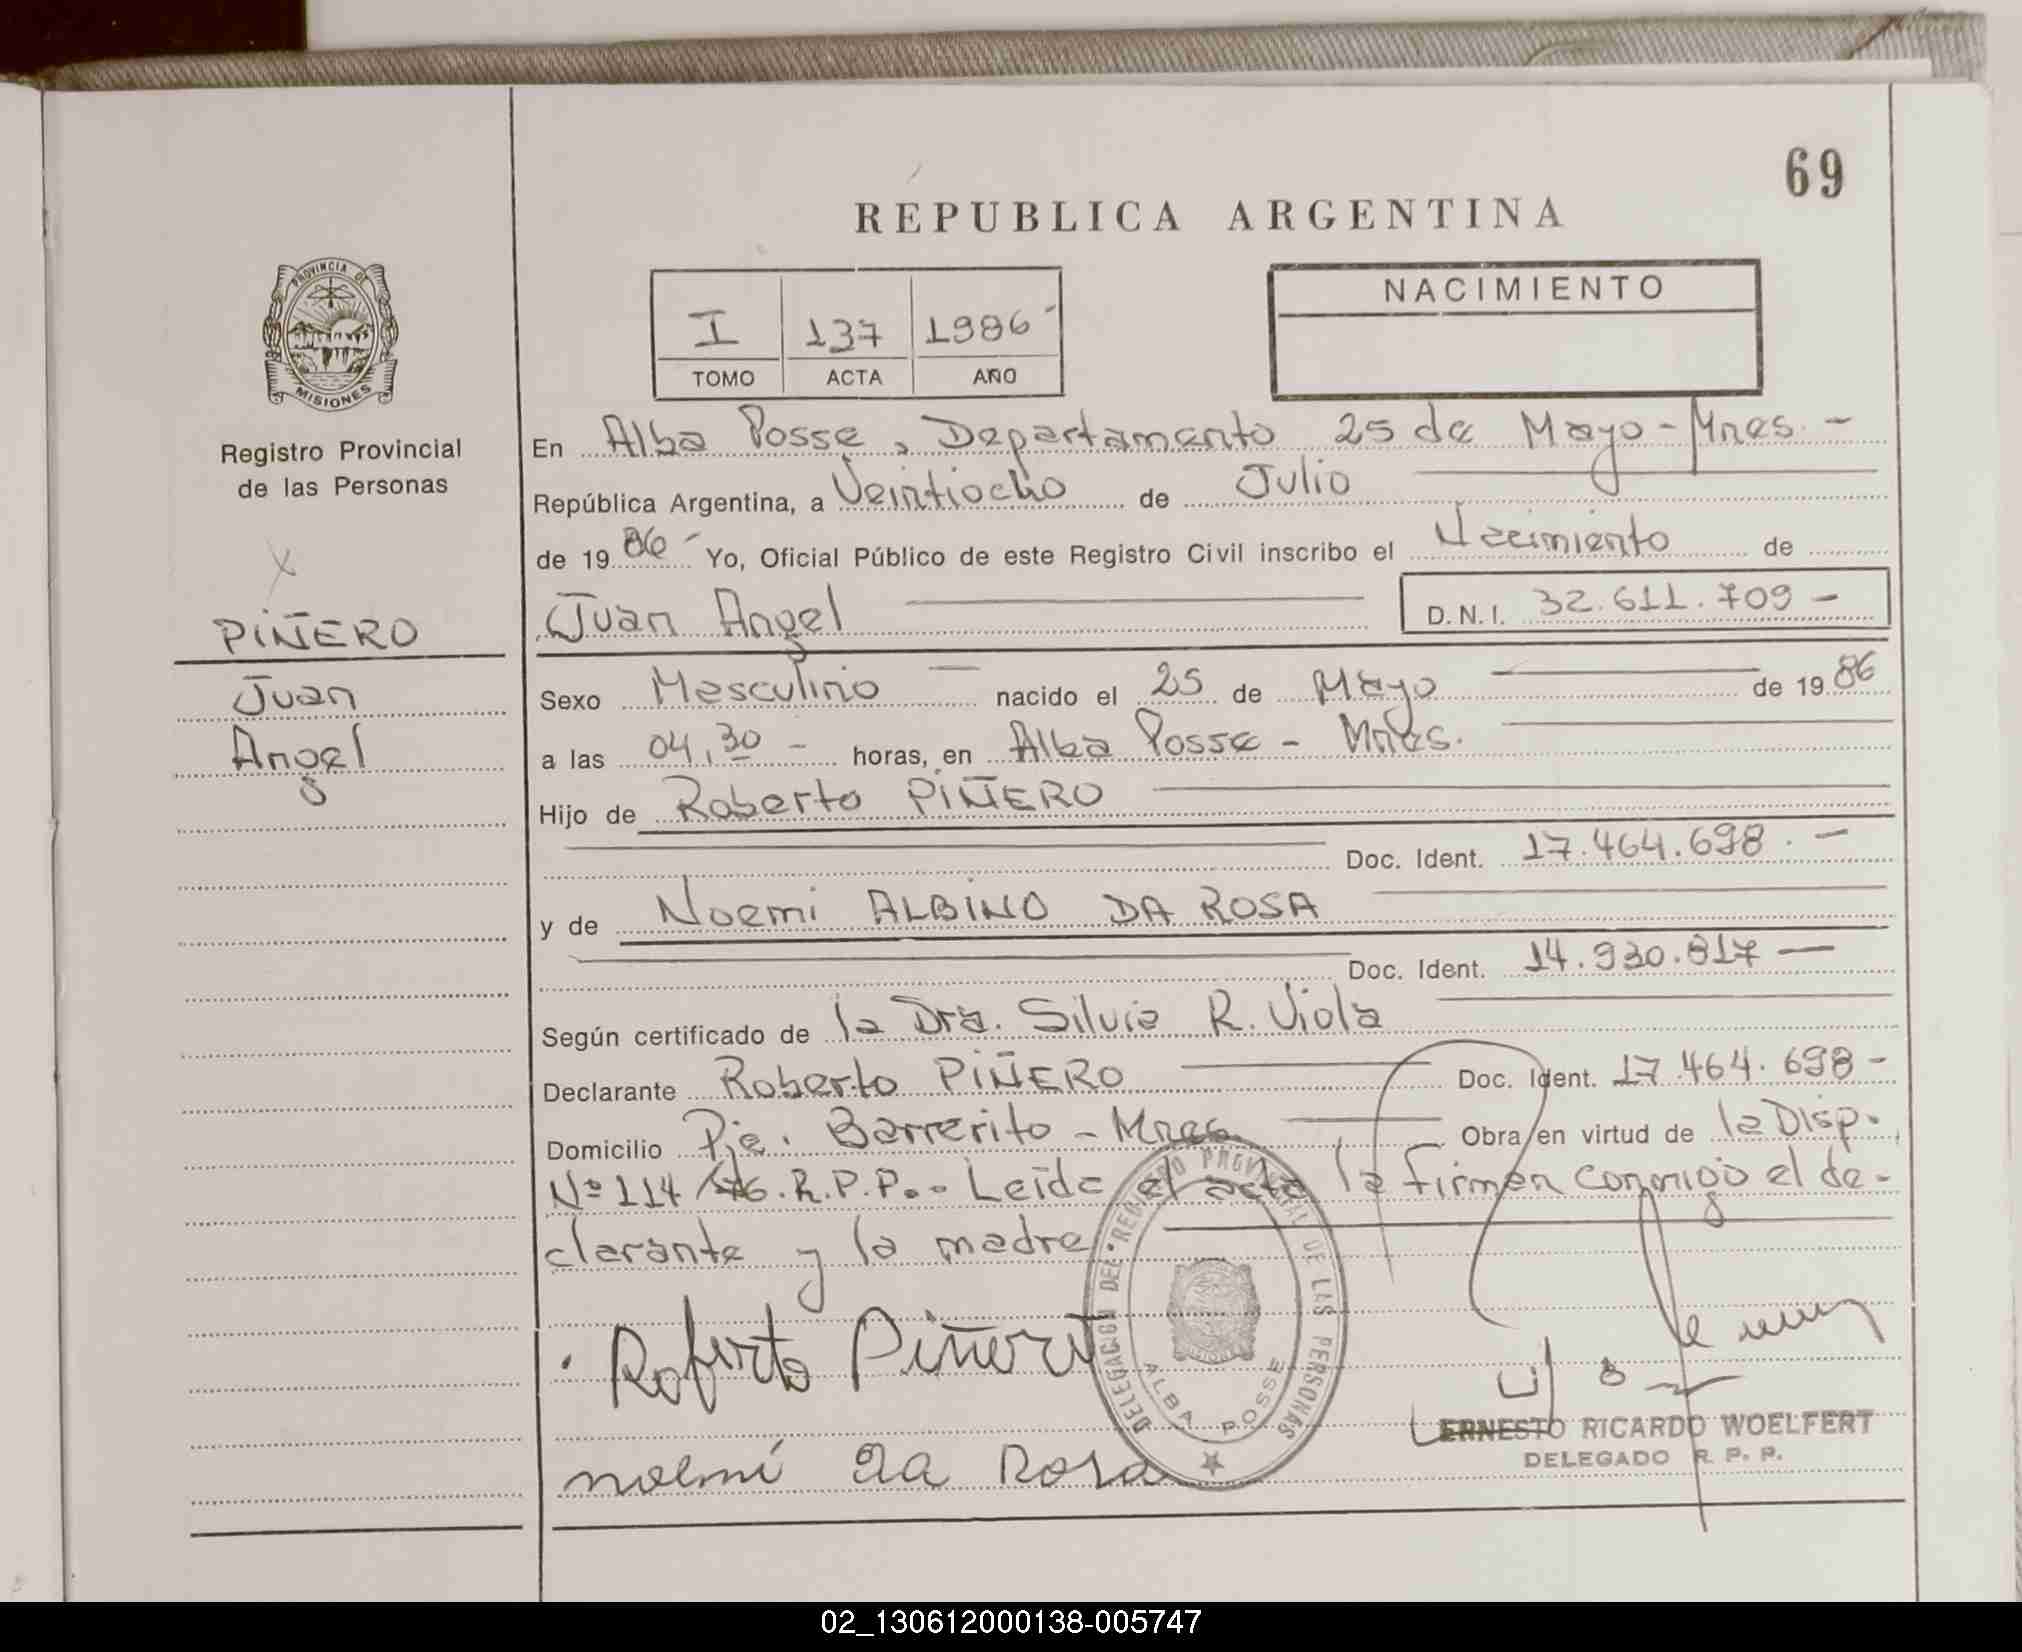 69
REPUBLICA ARGENTINA
PROVINCIA DE
MISIONES
Registro Provincial
de las Personas
X
PIÑERO
Juan
Angel
I 137 1986-
TOMO ACTA AÑO
NACIMIENTO
En Alba Posse, Departamento 25 de Mayo-Mnes.-
República Argentina, a Veintiocho de Julio
de 1986- Yo, Oficial Público de este Registro Civil inscribo el Nacimiento de
Juan Angel D.N.I. 32.611.709-
Sexo Masculino nacido el 25 de Mayo de 1986
a las 04,30- horas, en Alba Posse - Mnes.
Hijo de Roberto PIÑERO
Doc. Ident. 17.464.698.-
y de Noemi ALBINO DA ROSA
Doc. Ident. 14.930.817-
Según certificado de la Dra. Silvia R. Viola
Declarante Roberto PIÑERO Doc. Ident. 17.464.698-
Domicilio Pje. Barrerito - Mnes. Obra en virtud de la Disp.
Nº 114/76.R.P.P..- Leída el acta la firman conmigo el de-
clarante y la madre
Roberto Piñero
noemí da Rosa
DELEGACION DEL REGISTRO PROVINCIAL DE LAS PERSONAS
ALBA POSSE
ERNESTO RICARDO WOELFERT
DELEGADO R. P. P.
02_130612000138-005747